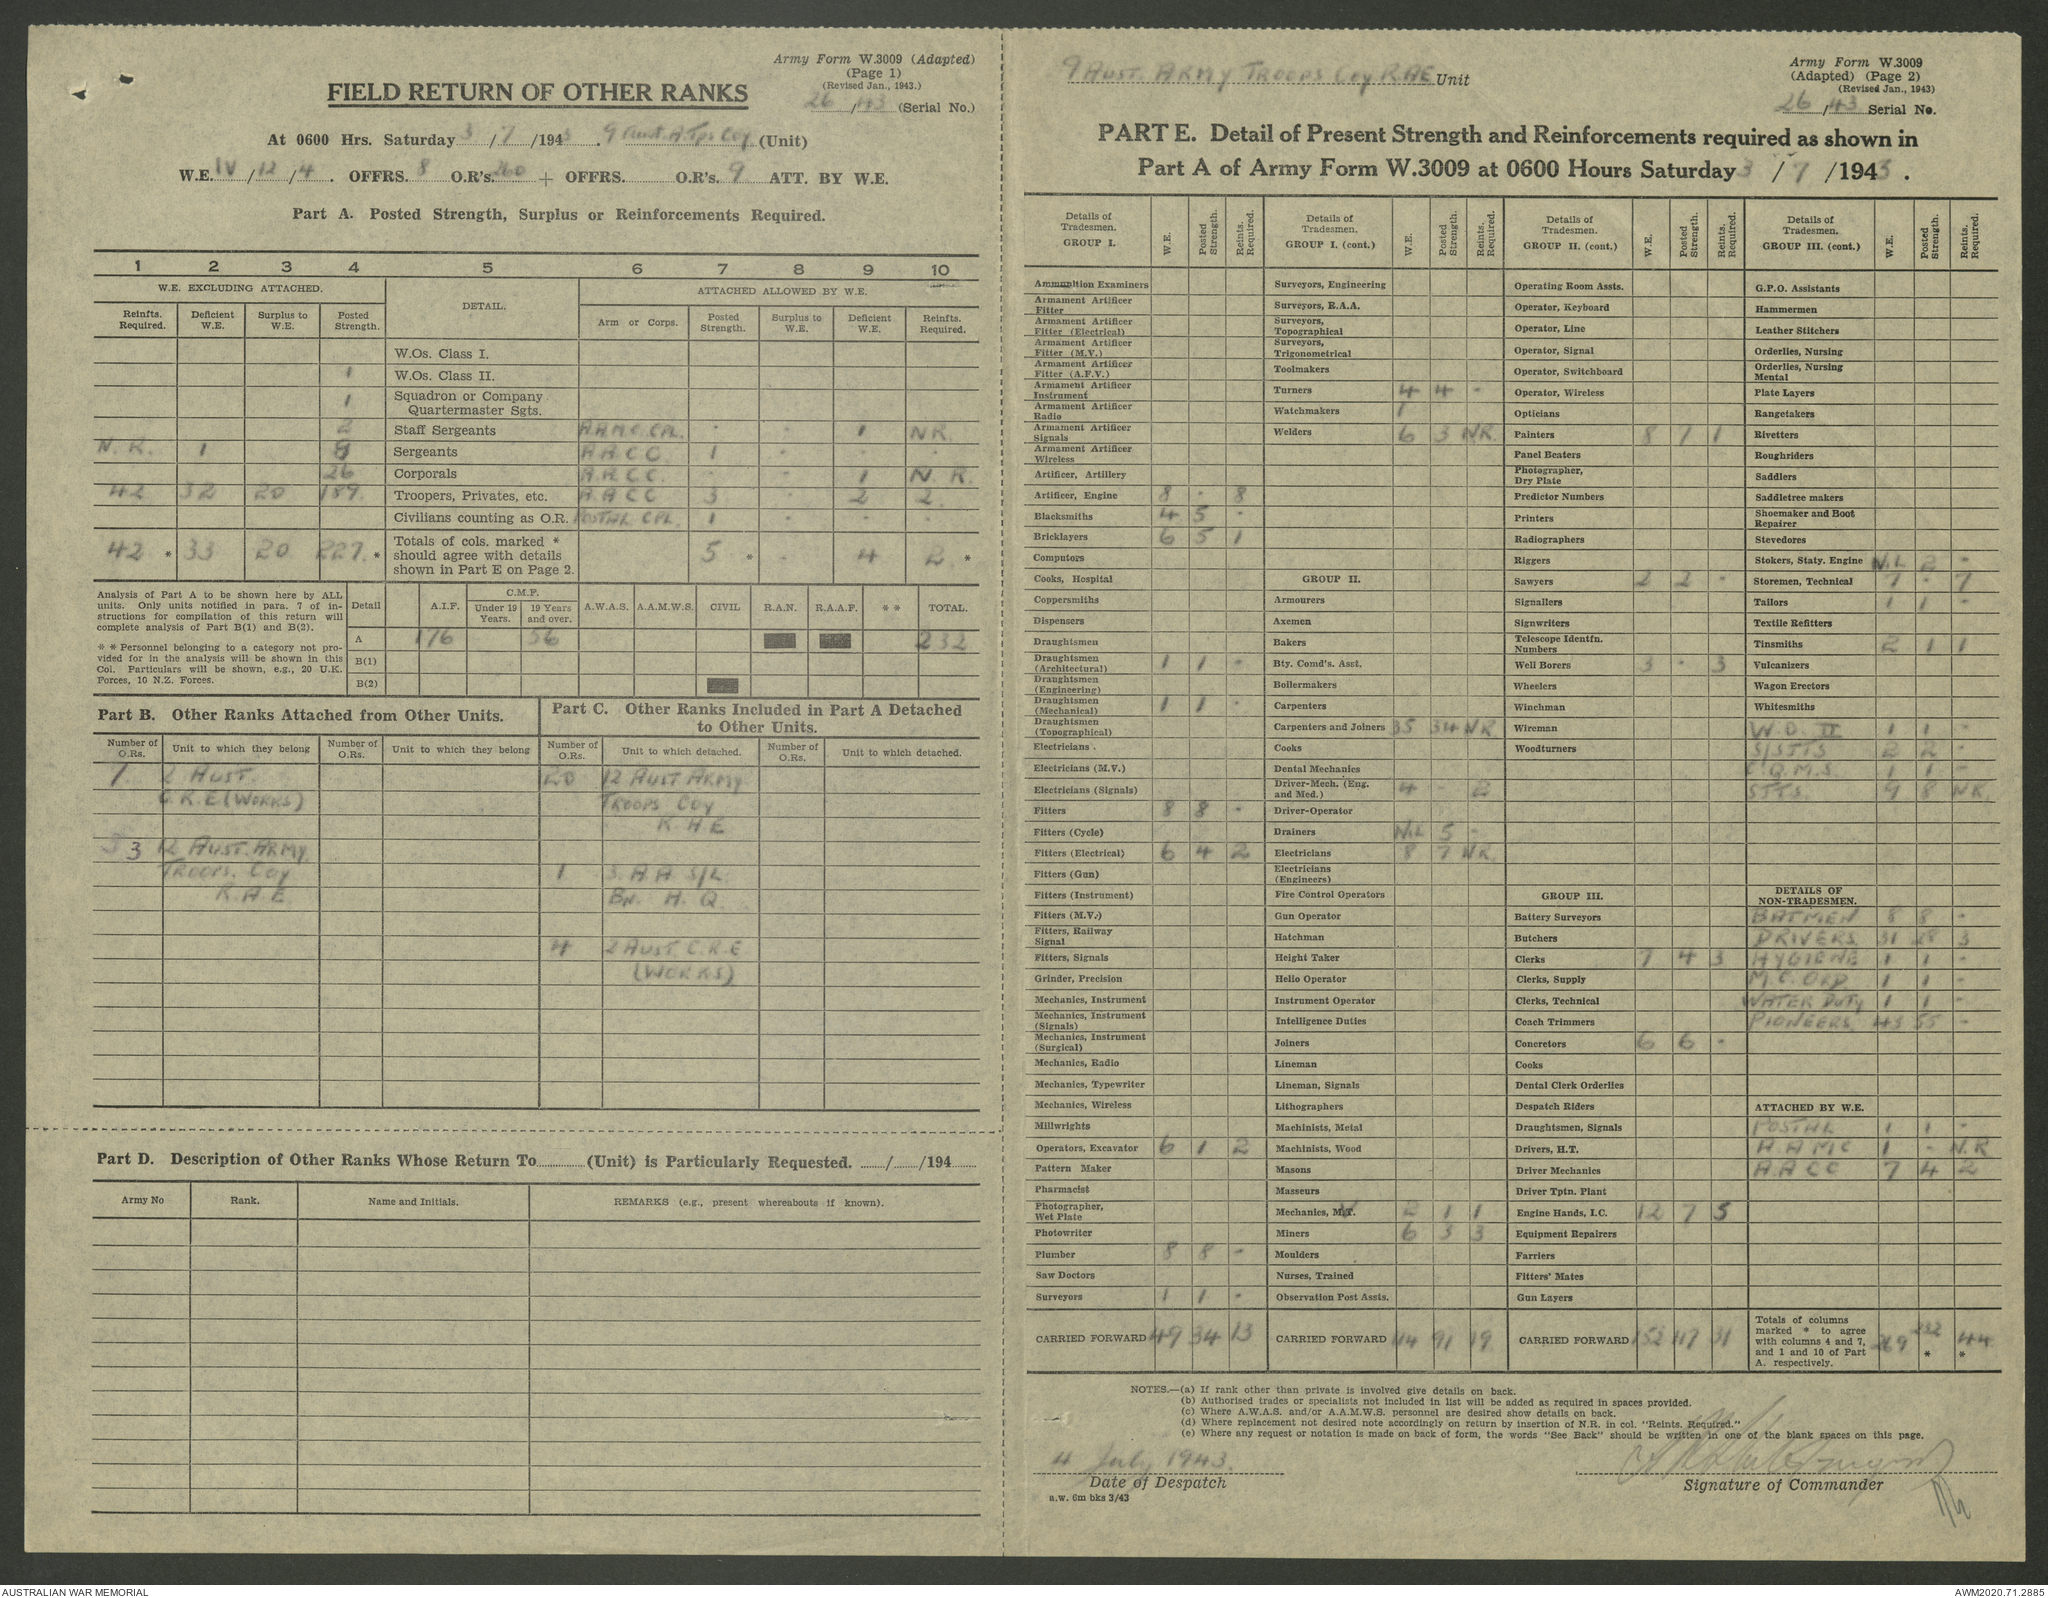 Army Form W.3009 (Adapted)
(Page 1)
(Revised Jan., 1943.)
FIELD RETURN OF OTHER RANKS
26/43 (Serial No.)
At 0600 Hrs. Saturday 3/7/1943. 9 Aust A Tps Coy (Unit)
W.E. IV/12/4. OFFRS. 8 O.R's. 260 + OFFRS. O.R's. 9 ATT. BY W.E.
Part A. Posted Strength, Surplus or Reinforcements Required.
1 2 3 4 5 6 7 8 9 10
W.E. EXCLUDING ATTACHED. DETAIL. ATTACHED ALLOWED BY W.E.
Reinfts. Required. Deficient W.E. Surplus to W.E. Posted Strength. Arm or Corps. Posted Strength. Surplus to W.E. Deficient W.E. Reinfts. Required.
W.Os. Class I.
1 W.Os. Class II.
1 Squadron or Company Quartermaster Sgts.
2 Staff Sergeants A.A.M.C. CPL. - - 1 N.R.
N.R. 1 8 Sergeants A.A.C.C. 1 - - -
26 Corporals A.A.C.C. - - 1 N.R.
42 32 20 189 Troopers, Privates, etc. A.A.C.C 3 - 2 2
Civilians counting as O.R. POSTAL CPL. 1 - - -
42 * 33 20 227 * Totals of cols. marked * should agree with details shown in Part E on Page 2. 5 * - 4 2 *
Analysis of Part A to be shown here by ALL units. Only units notified in para. 7 of instructions for compilation of this return will complete analysis of Part B(1) and B(2).
* * Personnel belonging to a category not provided for in the analysis will be shown in this Col. Particulars will be shown, e.g., 20 U.K. Forces, 10 N.Z. Forces.
Detail A.I.F. C.M.F. Under 19 Years. 19 Years and over. A.W.A.S. A.A.M.W.S. CIVIL R.A.N. R.A.A.F. * * TOTAL.
A 176 56 232
B(1)
B(2)
Part B. Other Ranks Attached from Other Units.
Number of O.Rs. Unit to which they belong Number of O.Rs. Unit to which they belong
1 2 AUST.
C.R.E (WORKS)
3 12 AUST. ARMY
TROOPS. COY
R.A.E
Part C. Other Ranks Included in Part A Detached to Other Units.
Number of O.Rs. Unit to which detached. Number of O.Rs. Unit to which detached.
20 12 AUST ARMY
TROOPS COY
R.A.E
1 3. A A S/L
BN. H.Q.
4 2 AUST C.R.E
(WORKS)
Part D. Description of Other Ranks Whose Return To (Unit) is Particularly Requested. / /194
Army No Rank. Name and Initials. REMARKS (e.g., present whereabouts if known).
9 AUST. ARMY TROOPS COY R.A.E Unit
Army Form W.3009
(Adapted) (Page 2)
(Revised Jan., 1943)
26/43 Serial No.
PART E. Detail of Present Strength and Reinforcements required as shown in
Part A of Army Form W.3009 at 0600 Hours Saturday 3/7/1943.
Details of Tradesmen. GROUP I. W.E. Posted Strength. Reints. Required.
Ammunition Examiners
Armament Artificer Fitter
Armament Artificer Fitter (Electrical)
Armament Artificer Fitter (M.V.)
Armament Artificer Fitter (A.F.V.)
Armament Artificer Instrument
Armament Artificer Radio
Armament Artificer Signals
Armament Artificer Wireless
Artificer, Artillery
Artificer, Engine 8 - 8
Blacksmiths 4 5 -
Bricklayers 6 5 1
Computors
Cooks, Hospital
Coppersmiths
Dispensers
Draughtsmen
Draughtsmen (Architectural) 1 1 -
Draughtsmen (Engineering)
Draughtsmen (Mechanical) 1 1 -
Draughtsmen (Topographical)
Electricians
Electricians (M.V.)
Electricians (Signals)
Fitters 8 8 -
Fitters (Cycle)
Fitters (Electrical) 6 4 2
Fitters (Gun)
Fitters (Instrument)
Fitters (M.V.)
Fitters, Railway Signal
Fitters, Signals
Grinder, Precision
Mechanics, Instrument
Mechanics, Instrument (Signals)
Mechanics, Instrument (Surgical)
Mechanics, Radio
Mechanics, Typewriter
Mechanics, Wireless
Millwrights
Operators, Excavator 6 1 2
Pattern Maker
Pharmacist
Photographer, Wet Plate
Photowriter
Plumber 8 8 -
Saw Doctors
Surveyors 1 1 -
CARRIED FORWARD 49 34 13
Details of Tradesmen. GROUP I. (cont.) W.E. Posted Strength. Reints. Required.
Surveyors, Engineering
Surveyors, R.A.A.
Surveyors, Topographical
Surveyors, Trigonometrical
Toolmakers
Turners 4 4 -
Watchmakers 1
Welders 6 3 N.R.
GROUP II.
Armourers
Axemen
Bakers
Bty. Comd's. Asst.
Boilermakers
Carpenters
Carpenters and Joiners 35 34 N.R
Cooks
Dental Mechanics
Driver-Mech. (Eng. and Med.) 4 - 2
Driver-Operator
Drainers NIL 5 -
Electricians 8 7 N.R.
Electricians (Engineers)
Fire Control Operators
Gun Operator
Hatchman
Height Taker
Helio Operator
Instrument Operator
Intelligence Duties
Joiners
Lineman
Lineman, Signals
Lithographers
Machinists, Metal
Machinists, Wood
Masons
Masseurs
Mechanics, M.T. 2 1 1
Miners 6 3 3
Moulders
Nurses, Trained
Observation Post Assts.
CARRIED FORWARD 114 91 19
Details of Tradesmen. GROUP II. (cont.) W.E. Posted Strength. Reints. Required.
Operating Room Assts.
Operator, Keyboard
Operator, Line
Operator, Signal
Operator, Switchboard
Operator, Wireless
Opticians
Painters 8 7 1
Panel Beaters
Photographer, Dry Plate
Predictor Numbers
Printers
Radiographers
Riggers
Sawyers 2 2 -
Signallers
Signwriters
Telescope Identfn. Numbers
Well Borers 3 - 3
Wheelers
Winchman
Wireman
Woodturners
GROUP III.
Battery Surveyors
Butchers
Clerks 7 4 3
Clerks, Supply
Clerks, Technical
Coach Trimmers
Concretors 6 6 -
Cooks
Dental Clerk Orderlies
Despatch Riders
Draughtsmen, Signals
Drivers, H.T.
Driver Mechanics
Driver Tptn. Plant
Engine Hands, I.C. 12 7 5
Equipment Repairers
Farriers
Fitters' Mates
Gun Layers
CARRIED FORWARD 152 117 31
Details of Tradesmen. GROUP III. (cont.) W.E. Posted Strength. Reints. Required.
G.P.O. Assistants
Hammermen
Leather Stitchers
Orderlies, Nursing
Orderlies, Nursing Mental
Plate Layers
Rangetakers
Rivetters
Roughriders
Saddlers
Saddletree makers
Shoemaker and Boot Repairer
Stevedores
Stokers, Staty. Engine NIL 2 -
Storemen, Technical 7 - 7
Tailors 1 1 -
Textile Refitters
Tinsmiths 2 1 1
Vulcanizers
Wagon Erectors
Whitesmiths
W.O. II 1 1 -
S/SJTS 2 2 -
C.Q.M.S. 1 1 -
SJTS. 9 8 N.R.
DETAILS OF NON-TRADESMEN.
BATMEN 8 8 -
DRIVERS 31 28 3
HYGIENE 1 1 -
M.C. ORD 1 1 -
WATER DUTY 1 1 -
PIONEERS 43 55 -
ATTACHED BY W.E.
POSTAL 1 1 -
A.A.M.C 1 - N.R
A.A.C.C 7 4 2
Totals of columns marked * to agree with columns 4 and 7, and 1 and 10 of Part A. respectively. 269 232 * 44 *
NOTES.—(a) If rank other than private is involved give details on back.
(b) Authorised trades or specialists not included in list will be added as required in spaces provided.
(c) Where A.W.A.S. and/or A.A.M.W.S. personnel are desired show details on back.
(d) Where replacement not desired note accordingly on return by insertion of N.R. in col. "Reints. Required."
(e) Where any request or notation is made on back of form, the words "See Back" should be written in one of the blank spaces on this page.
4 July 1943.
Date of Despatch
Signature of Commander
a.w. 6m bks 3/43
AUSTRALIAN WAR MEMORIAL
AWM2020.71.2885